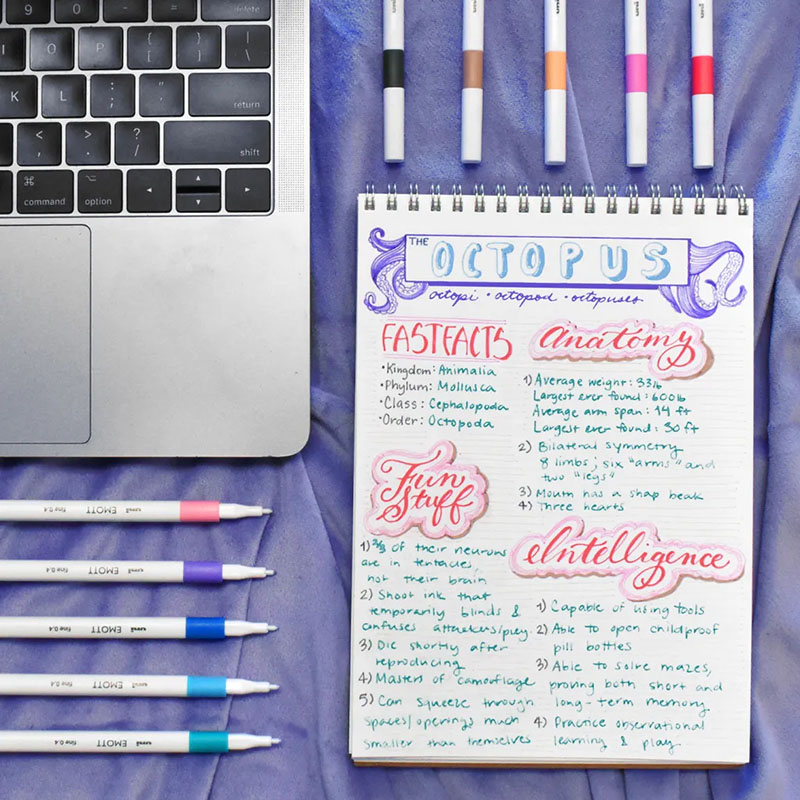 9
0
-
P
{ [
} ]
| \
K
L
: ;
" '
return
< ,
> .
? /
shift
⌘
command
⌥
option
uni
uni
uni
uni
THE OCTOPUS
octopi • octopod • octopuses
FAST FACTS
• Kingdom: Animalia
• Phylum: Mollusca
• Class: Cephalopoda
• Order: Octopoda
Anatomy
1) Average weight: 33lb
Largest ever found: 600lb
Average arm span: 14 ft
Largest ever found: 30 ft
2) Bilateral symmetry
8 limbs; six "arms" and
two "legs"
3) Mouth has a shap beak
4) Three hearts
Fun
Stuff
1) 2/3 of their neurons
are in tentacles,
not their brain
2) Shoot ink that
temporarily blinds &
confuses attackers/prey.
3) Die shortly after
reproducing
4) Masters of camoflage
5) Can squeeze through
spaces/openings much
smaller than themselves
eIntelligence
1) Capable of using tools
2) Able to open childproof
pill bottles
3) Able to solve mazes,
proving both short and
long-term memory
4) Practice observational
learning & play
fine 0.4 EMOTT uni
fine 0.4 EMOTT uni
fine 0.4 EMOTT uni
fine 0.4 EMOTT uni
fine 0.4 EMOTT uni